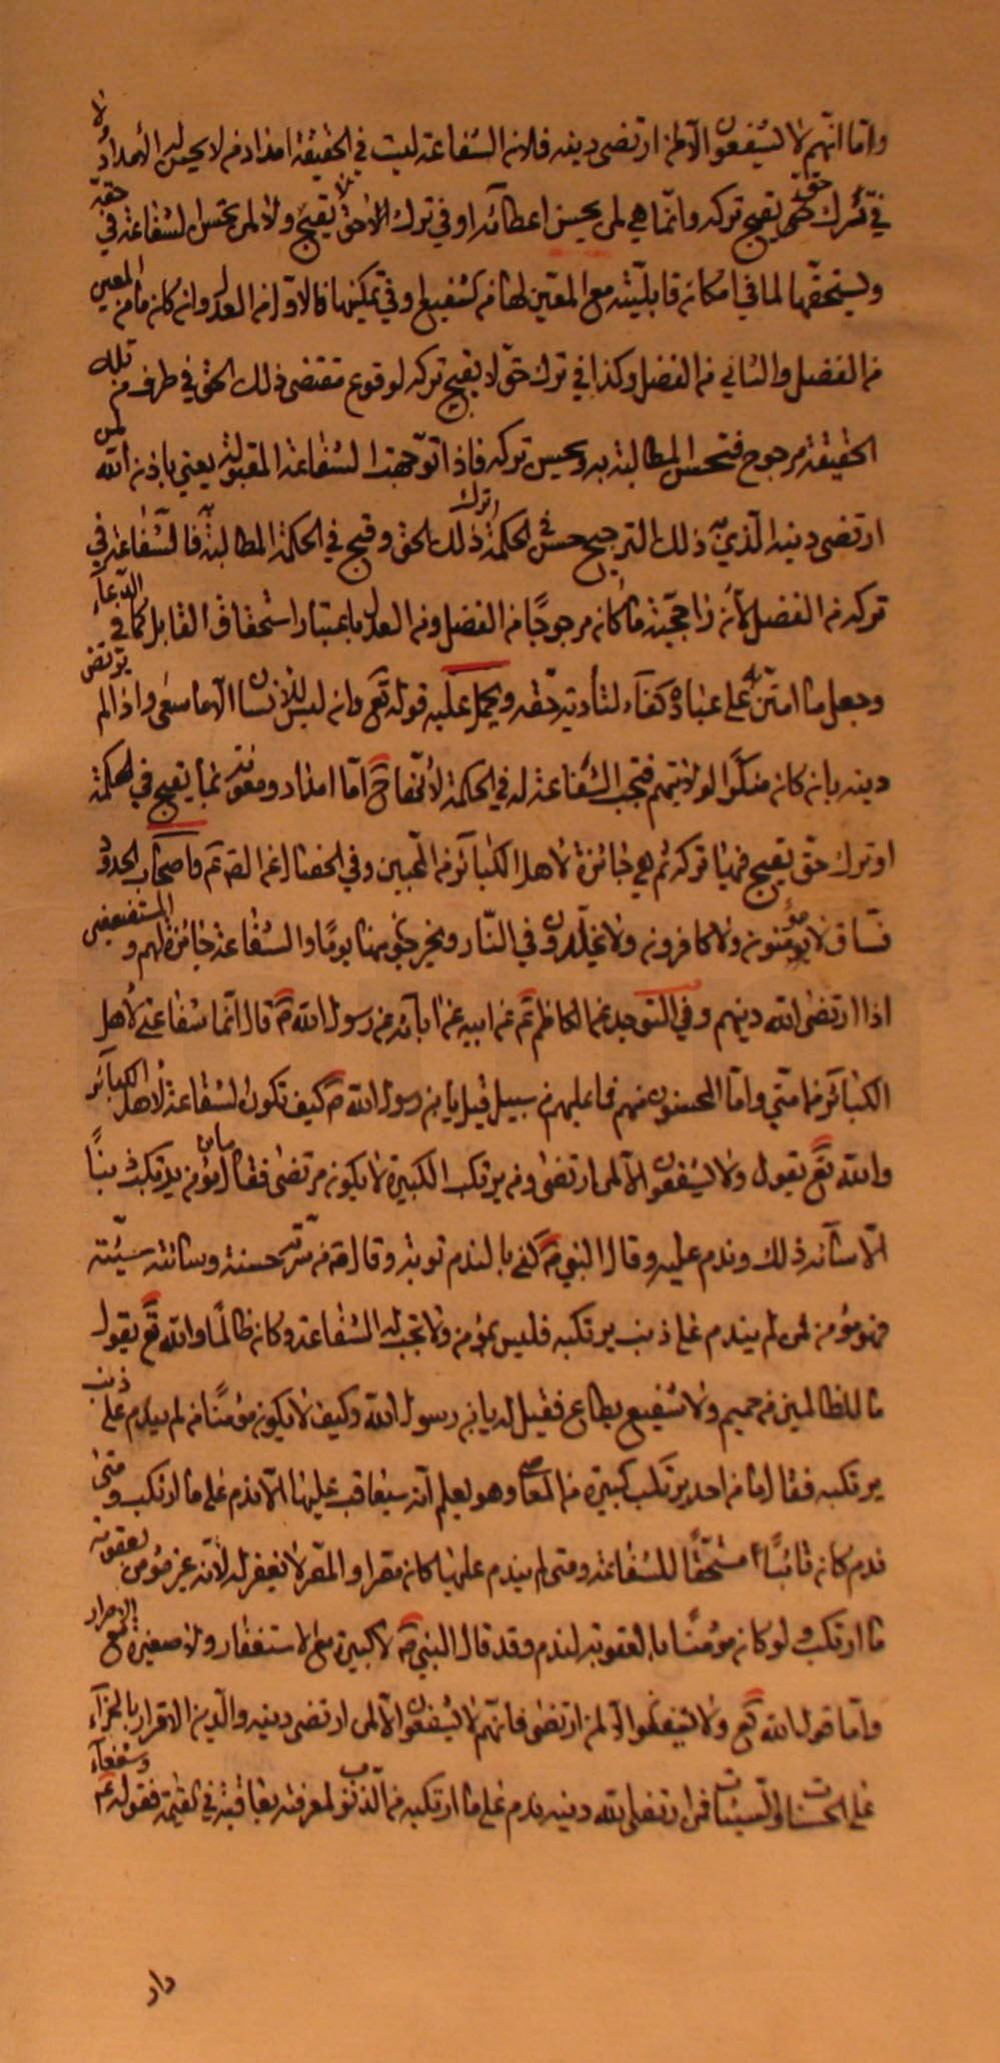 وامّا انّهم لا يشفعون الّا لمن ارتضى دينه فلانه الشفاعة ليست في الحقيقة امدادا من لا يحسن له الأمداد لا
في ترك حقّ يقبح تركه وانّما هي لمن يحسن اعطاؤه او في ترك لا حق يقبح ولا لمن تحسن الشفاعة في حقّه
ويستحقّها لما في امكانه قابليّته مع المعين لها من شفيع او في تمكينها فالأوّل من العدل وان كان من المعين
من الفضل والثاني من الفضل وكذا في ترك حقّ لا يقبح تركه لوقوع مقتضى ذلك الحق في طرف من تلك
الحقيقة مرجوح فتحسن المطالبة به ويحسن تركه فاذا توجّهت الشفاعة المقبولة يعني باذن الله لمن
ارتضى دينه الّذي به ذلك الترجيح حسن في الحكمة ترك ذلك الحق وقبح في الحكمة المطالبة به فالشّفاعة في
تركه من الفضل لأن راجحيّته ما كانه مرجوحًا من الفضل ومن العدل باعتبار استحقاق القابل كما في الدّعاء
وجعل ما امتنّ به على عباده كفاء لتأدية حقّه ويحمل عليه قوله تع وان ليس للأنسان الا ما سعى واذا لم يرتض
دينه بانه كانه منكرًا لولايتهم فتجب الشّفاعة له في الحكمة لأنّها ح امّا امداد ومعونة بما يقبح في الحكمة
او ترك حقّ يقبح فيها تركه ثم هي جائزة لأهل الكبائر من المحبين وفي الخصال عن الص ع م واصحاب الحدود
فسّاق لا مؤمنون ولا كافرون ولا يخلّدون في النّار ويخرجون منها يومًا والشفاعة جائزة لهم وللمستضعفين
اذا ارتضى الله دينهم وفي التوحيد عن الكاظم ع عن ابيه عن آبائه عن رسول الله ص قال انّما شفاعتي لأهل
الكبائر من امّتي وامّا المحسنون منهم فما عليهم من سبيل قيل يا بن رسول الله ص كيف تكون الشفاعة لأهل الكبائر
والله تع يقول ولا يشفعون الّا لمن ارتضى ومن يرتكب الكبيرة لا يكون مرتضى فقال ما من مؤمن يرتكب ذنبًا
الّا سآئه ذلك وندم عليه وقال النبي ص كفى بالندم توبة وقال ص من سرّته حسنة وسائته سيّئة
فهو مؤمن فمن لم يندم على ذنب يرتكبه فليس بمؤمن ولا تجب له الشفاعة وكان ظالمًا والله تع يقول
ما للظالمين من حميم ولا شفيع يطاع فقيل له يا بن رسول الله وكيف لا يكون مؤمنًا من لم يندم على ذنب
يرتكبه فقال ما من احد يرتكب كبيرة من المعاصي وهو يعلم انه سيعاقب عليها الّا ندم على ما ارتكب ومتى
ندم كانه تائبًا مستحقًّا للشفاعة ومتى لم يندم عليها كان مصرا والمصّر لا يغفر له لأنّه غير مؤمن بعقوبة
ما ارتكب ولو كان مؤمنًا بالعقوبة لندم وقد قال النبي ص لا كبيرة مع الاستغفار ولا صغيرة مع الاصرار
وامّا قول الله تع ولا يشفعون الّا لمن ارتضى فانّهم لا يشفعون الّا لمن ارتضى دينه والدّين الاقرار بالجزآء
على الحسنات والسيّئات فمن ارتضى الله دينه ندم على ما ارتكبه من الذّنوب لمعرفته بعاقبته في القيمة فقوله ع وشفعآء
دار